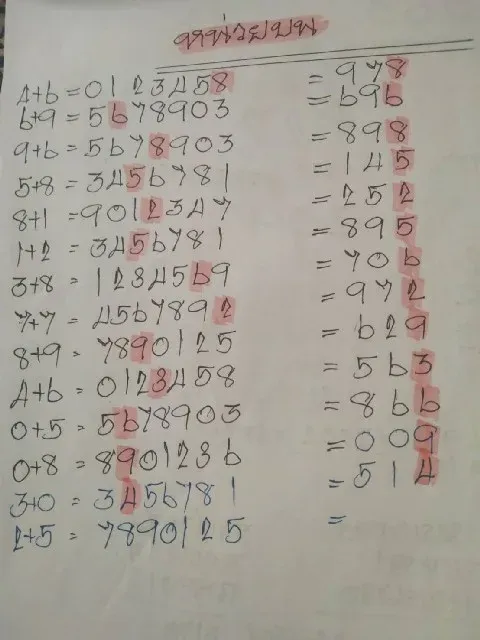 หน่วยบน
4+6 = 0123458 = 978
6+9 = 5678903 = 696
9+6 = 5678903 = 898
5+8 = 3456781 = 145
8+1 = 9012347 = 252
1+2 = 3456781 = 895
3+8 = 1234569 = 706
7+7 = 4567892 = 972
8+9 = 7890125 = 629
4+6 = 0123458 = 563
0+5 = 5678903 = 866
0+8 = 8901236 = 009
3+0 = 3456781 = 514
2+5 = 7890125 =